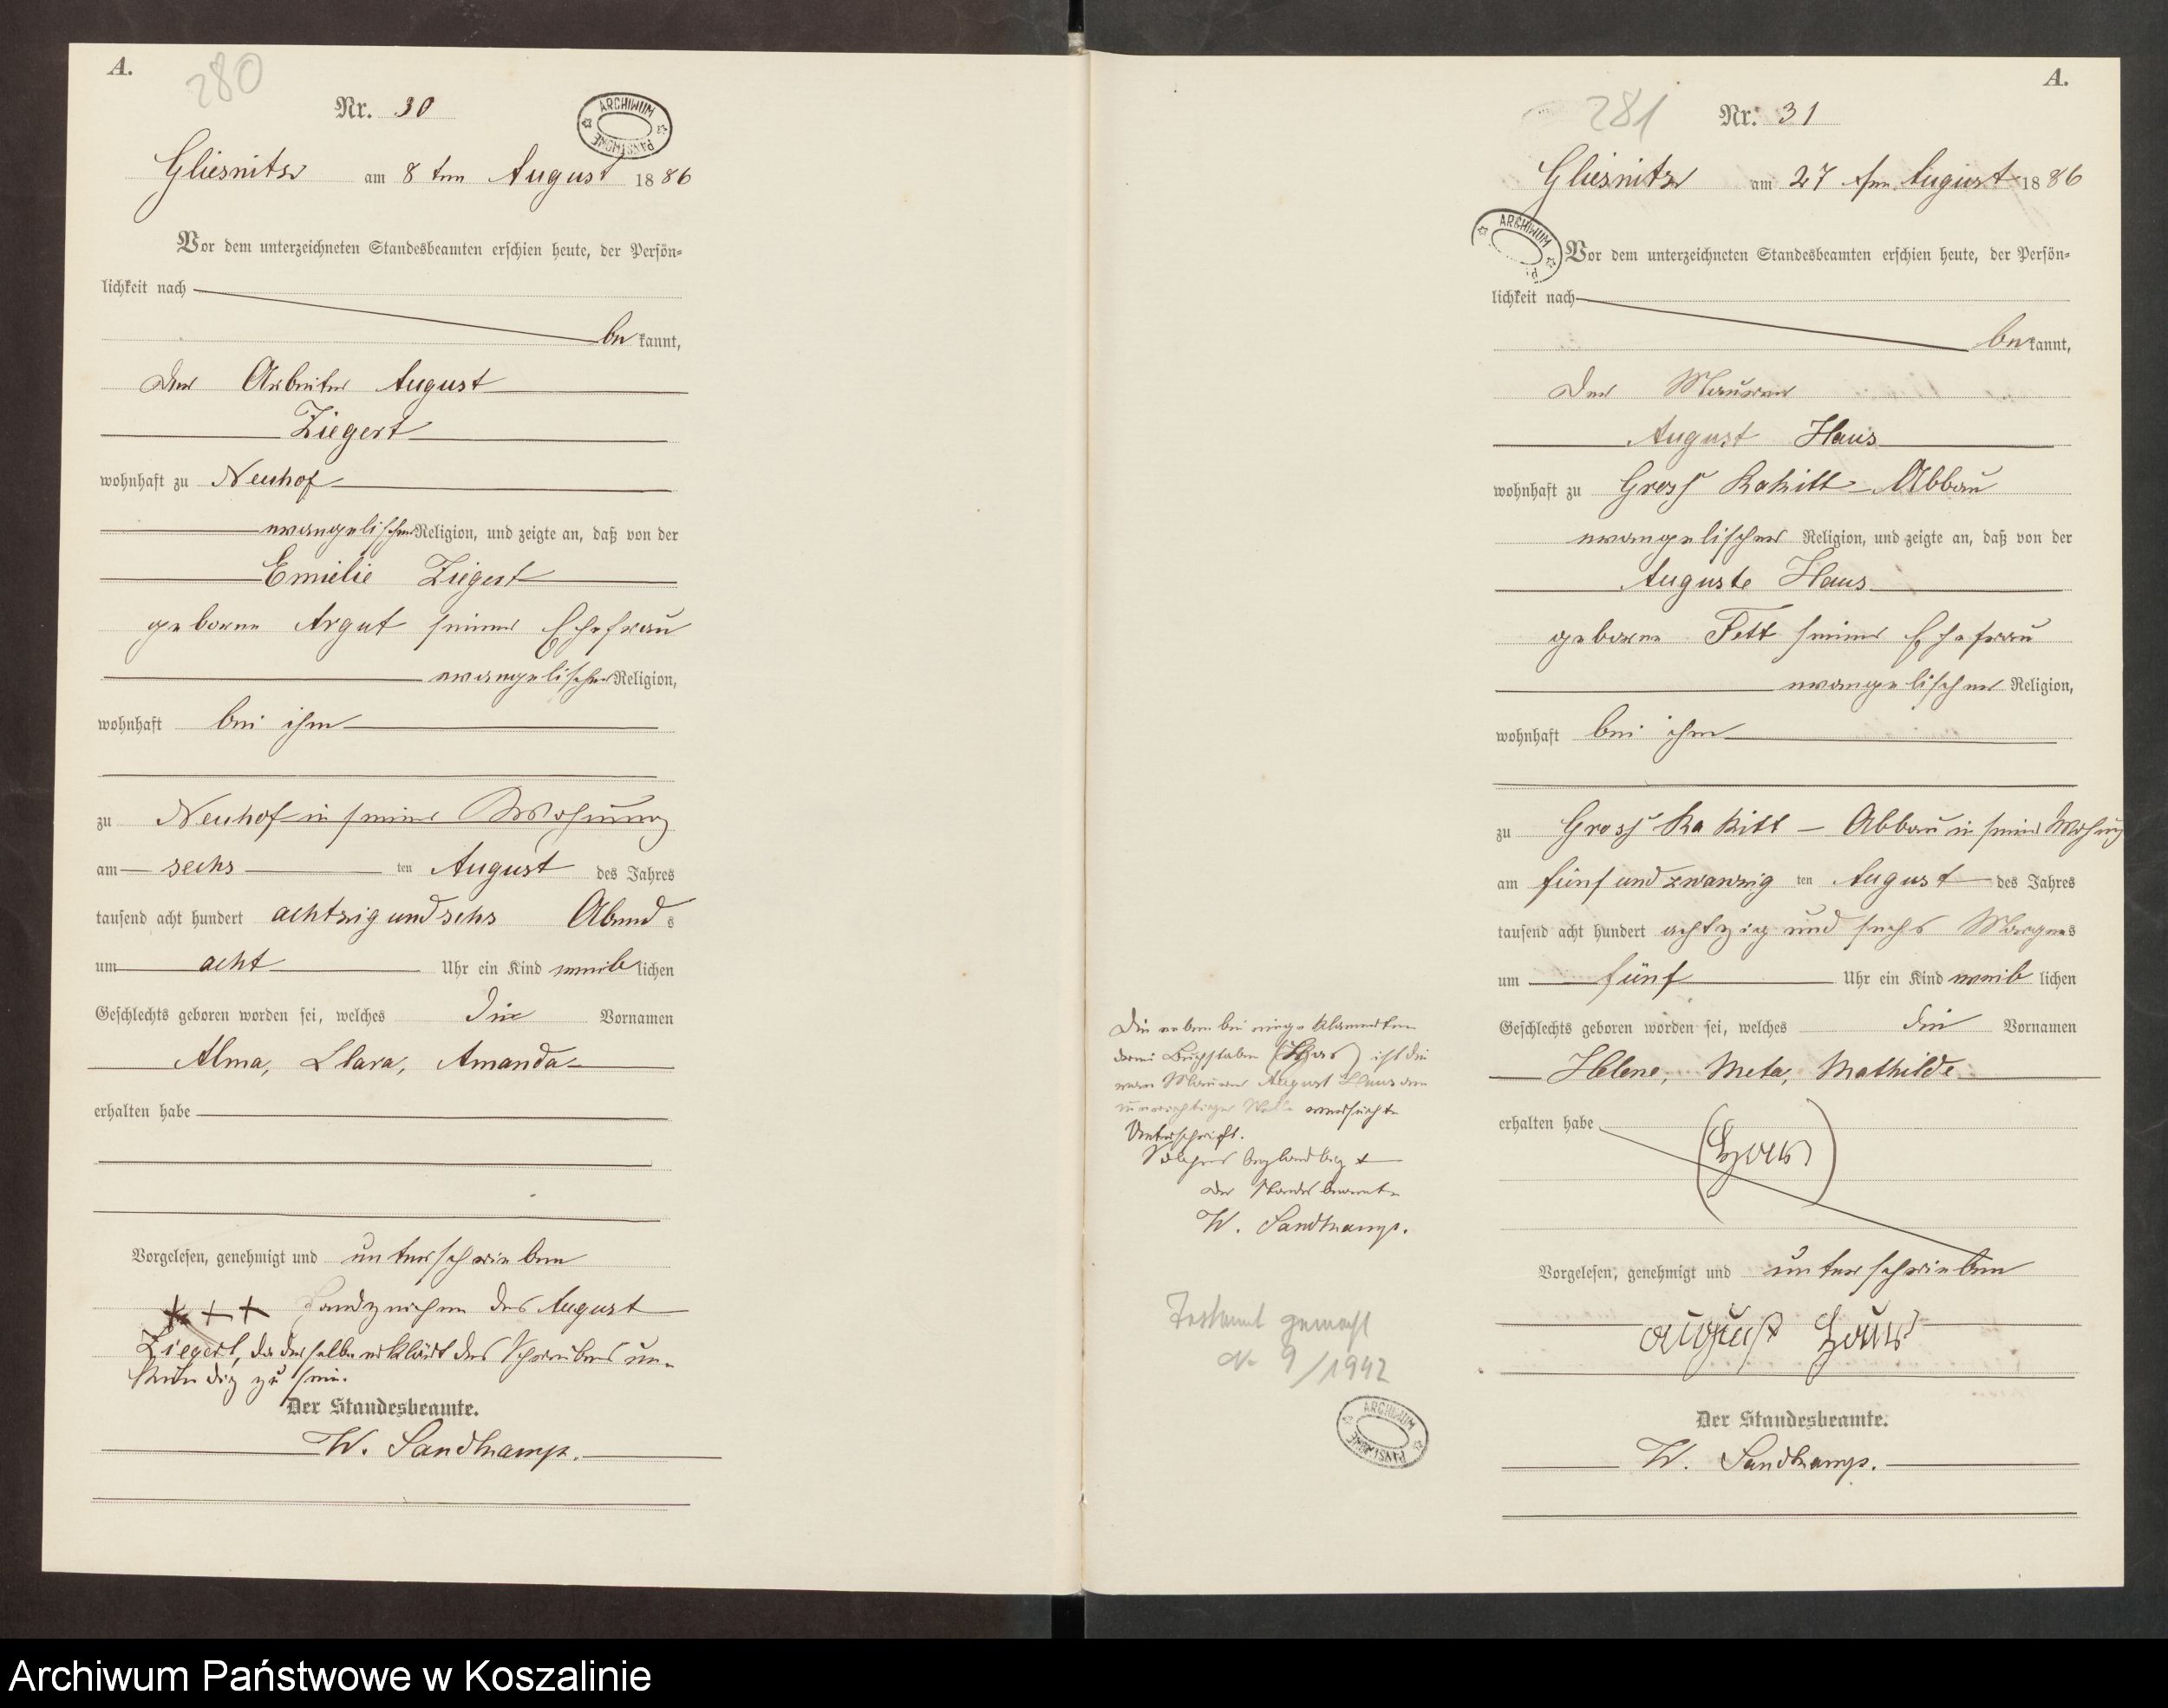 A.
280
Nr. 30
ARCHIWUM PAŃSTWOWE
Gliesnitz am 8 ten August 1886
Vor dem unterzeichneten Standesbeamten erschien heute, der Persön-
lichkeit nach
be kannt,
der Arbeiter August
Ziegert
wohnhaft zu Neuhof
evangelischer Religion, und zeigte an, daß von der
Emilie Ziegert
geborne Argut seiner Ehefrau
evangelischer Religion,
wohnhaft bei ihm
zu Neuhof in seiner Wohnung
am sechs ten August des Jahres
tausend acht hundert achtzig und sechs Abend s
um acht Uhr ein Kind weib lichen
Geschlechts geboren worden sei, welches die Vornamen
Alma, Clara, Amanda
erhalten habe
Vorgelesen, genehmigt und unterschrieben
+++ Handzeichen des August
Ziegert, da derselbe erklärt des Schreibens un-
kundig zu sein.
Der Standesbeamte.
W. Sandkamp.
A.
281
Nr. 31
Gliesnitz am 27 ten August 1886
ARCHIWUM
Vor dem unterzeichneten Standesbeamten erschien heute, der Persön-
lichkeit nach
be kannt,
der Maurer
August Haus
wohnhaft zu Gross Rakitt - Abbau
evangelischer Religion, und zeigte an, daß von der
Auguste Haus
geborne Fett seiner Ehefrau
evangelischer Religion,
wohnhaft bei ihm
zu Gross Rakitt - Abbau in seiner Wohnung
am fünf und zwanzig ten August des Jahres
tausend acht hundert achtzig und sechs Morgens
um fünf Uhr ein Kind weib lichen
Geschlechts geboren worden sei, welches die Vornamen
Helene, Meta, Mathilde
erhalten habe
(Haus)
Vorgelesen, genehmigt und unterschrieben
August Haus
Der Standesbeamte.
W. Sandkamp.
Die nebenbei eingeklammerten
Buchstaben ist die
Maurer August Haus an
unrichtiger Stelle versuchte
Unterschrift.
Solches beglaubigt
Der Standesbeamte
W. Sandkamp.
Testament gemacht
9/1942
ARCHIWUM PAŃSTWOWE
Archiwum Państwowe w Koszalinie